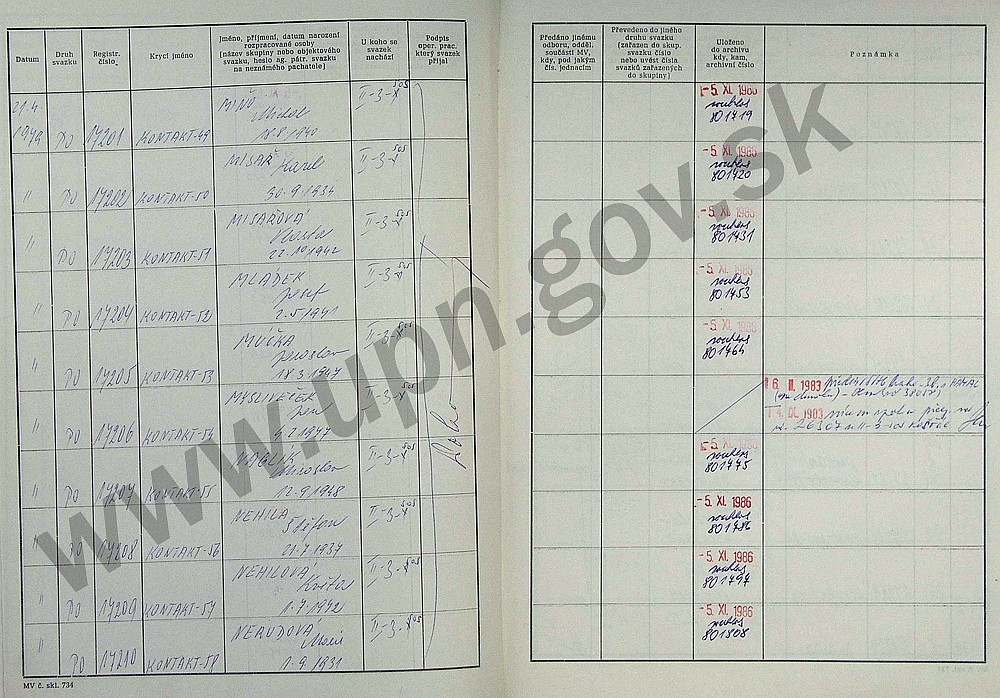 Datum
Druh svazku
Registr. číslo
Krycí jméno
Jméno, příjmení, datum narození
rozpracované osoby
(název skupiny nebo objektového
svazku, heslo ag. pátr. svazku
na neznámého pachatele)
U koho se
svazek
nachází
Podpis
oper. prac.
který svazek
přijal
21.4. 1979 PO 17201 KONTAKT-49 MINO Michal 18.8.1940 II-3-
" PO 17202 KONTAKT-50 MISAŘ Karel 30.9.1934 II-3-
" PO 17203 KONTAKT-51 MISAŘOVÁ Vlasta 22.10.1942 II-3-
" PO 17204 KONTAKT-52 MLÁDEK Josef 2.5.1941 II-3-
" PO 17205 KONTAKT-53 MÚČKA Jaroslav 18.3.1947 II-3-
" PO 17206 KONTAKT-54 MYSLIVEČEK Jan 4.2.1947 II-3-
" PO 17207 KONTAKT-55 NAGLIK Miroslav 12.9.1948 II-3-
" PO 17208 KONTAKT-56 NEHILA Štefan 21.7.1937 II-3-
" PO 17209 KONTAKT-57 NEHILOVÁ Květa 1.7.1942 II-3-
" PO 17210 KONTAKT-58 NERUDOVÁ Marie 1.9.1931 II-3-
MV č. skl. 734
Předáno jinému
odboru, odděl.
součásti MV,
kdy, pod jakým
čís. jednacím
Převedeno do jiného
druhu svazku
(zařazen do skup.
svazku číslo
nebo uvést čísla
svazků zařazených
do skupiny)
Uloženo
do archivu
kdy, kam,
archivní číslo
Poznámka
-5. XI. 1986
801419
-5. XI. 1986
801420
-5. XI. 1986
801431
-5. XI. 1986
801453
-5. XI. 1986
801464
16. II. 1983
14. IX. 1983
-5. XI. 1986
801475
-5. XI. 1986
801486
-5. XI. 1986
801797
-5. XI. 1986
801808
www.upn.gov.sk